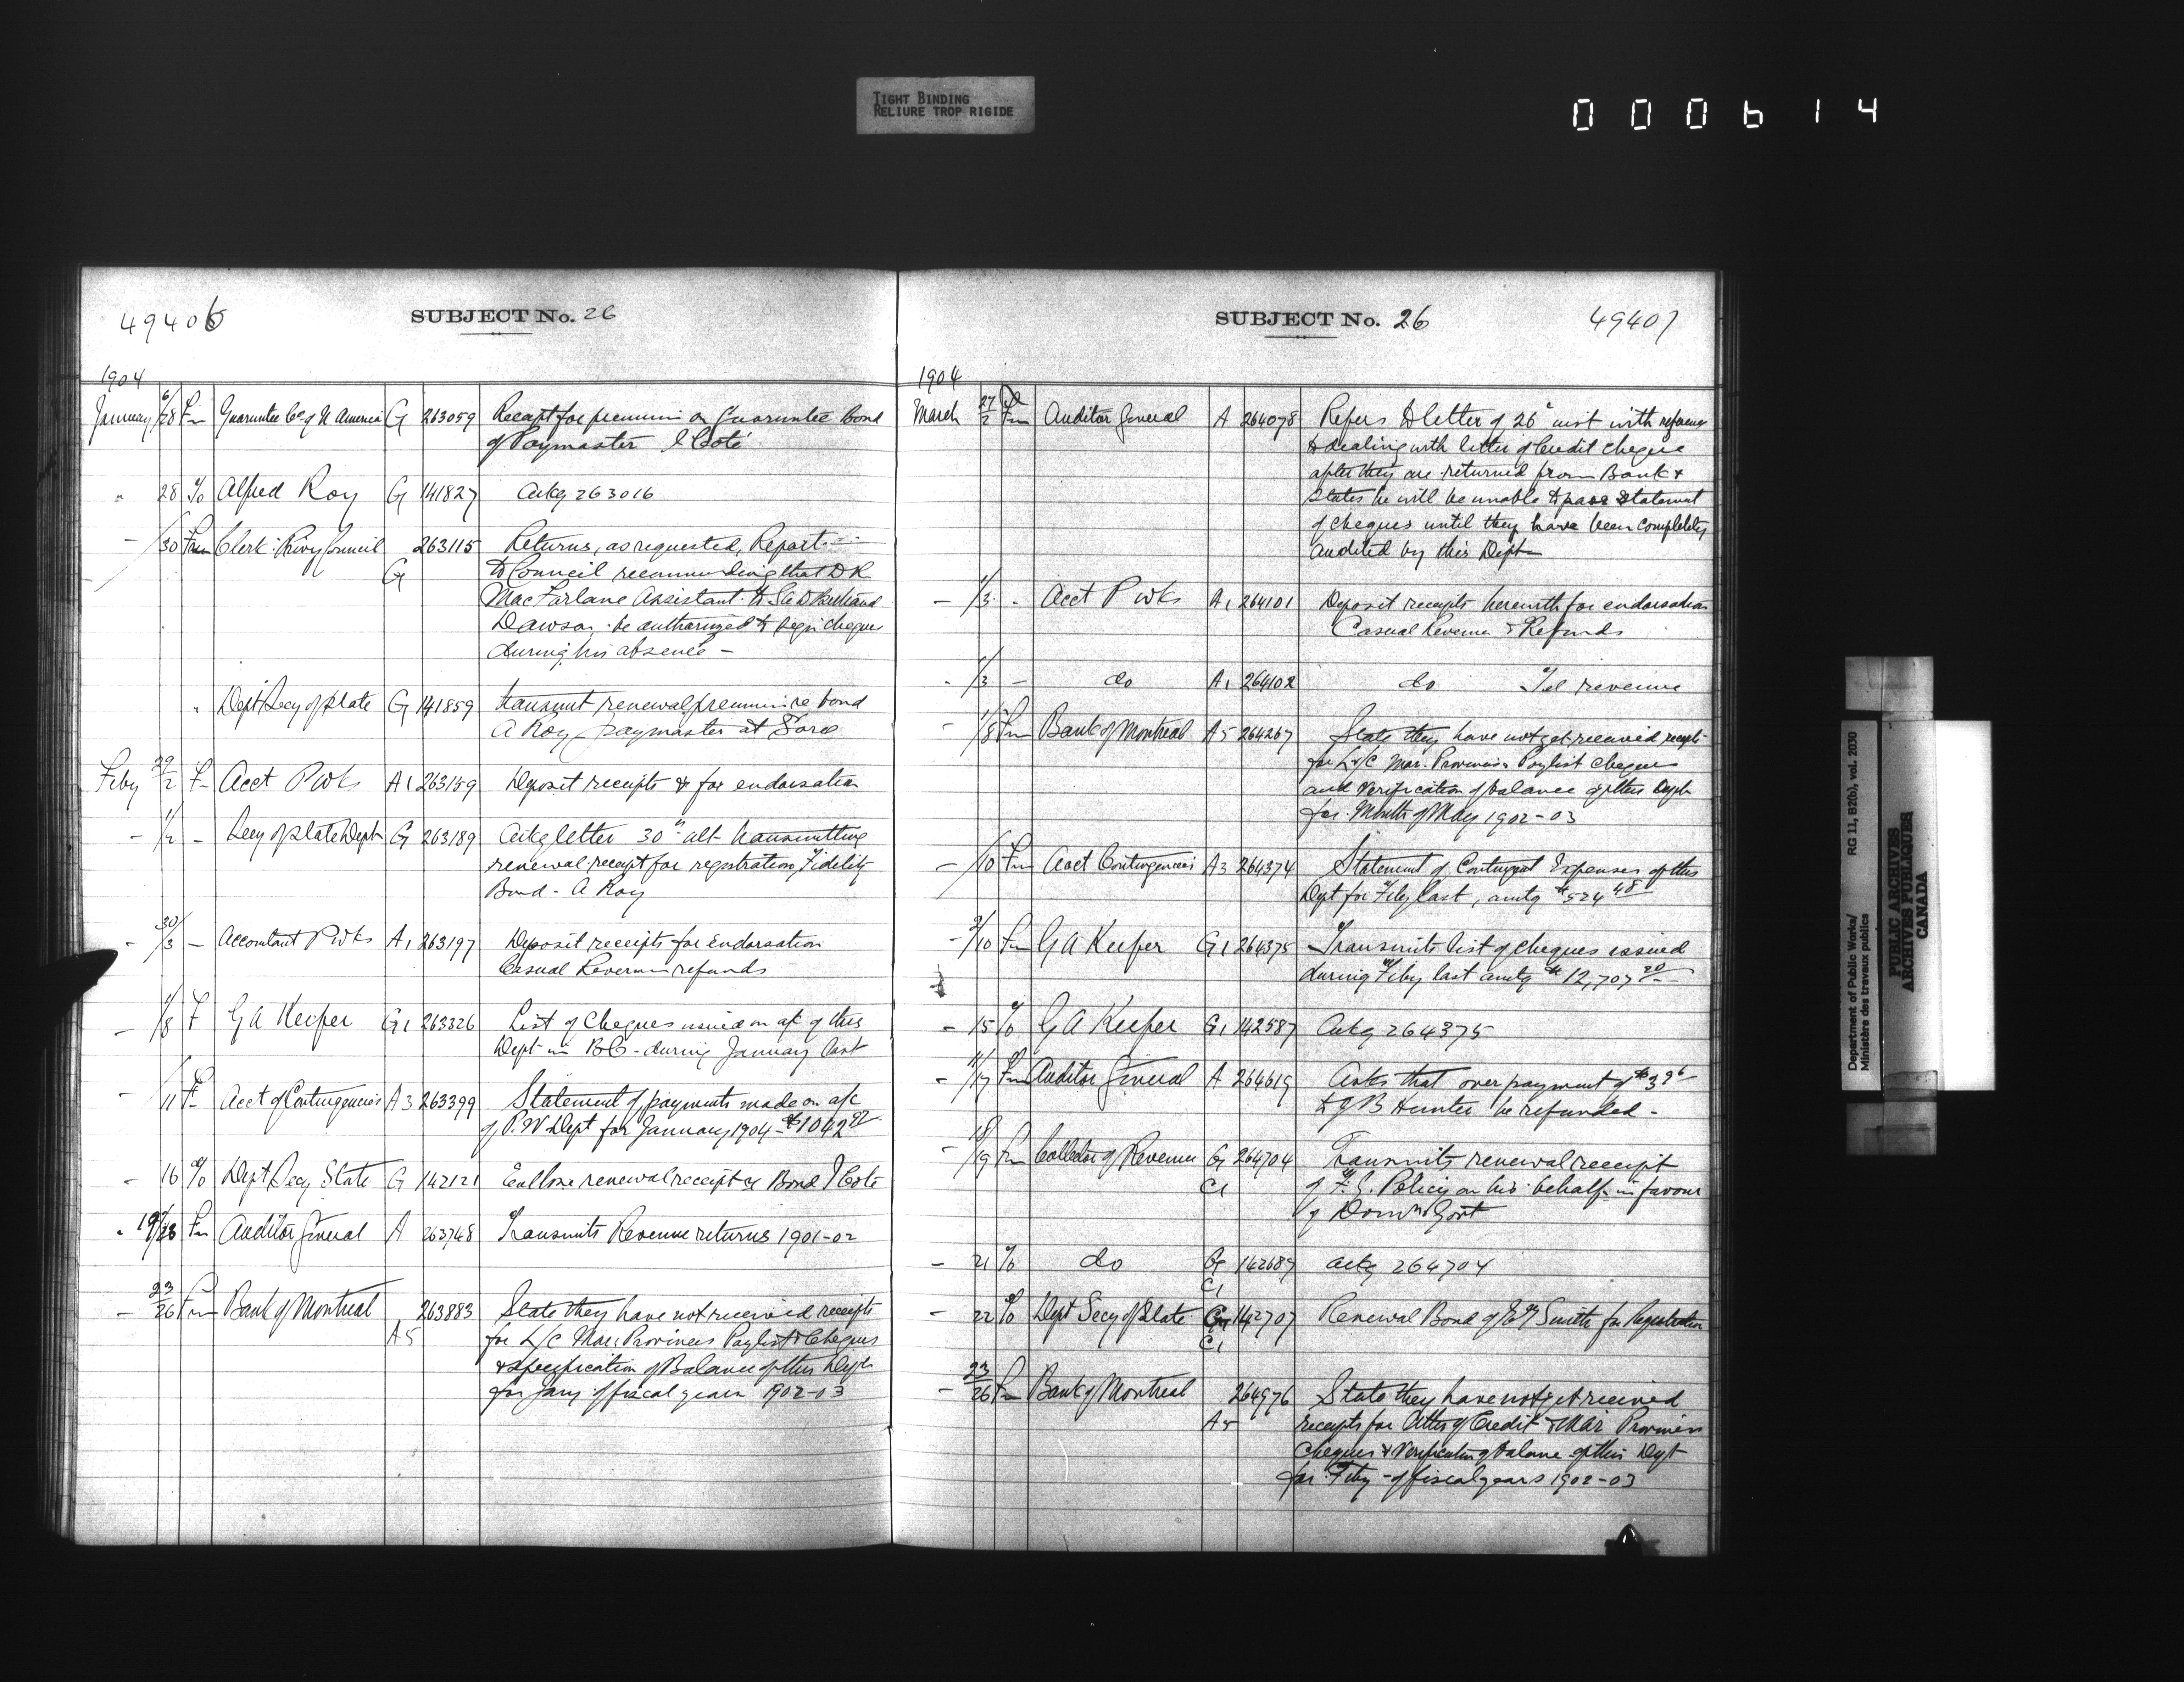 TIGHT BINDING
RELIURE TROP RIGIDE
000614
49406
SUBJECT No. 26
1904
January 6/28 Fm Guarantee Co of N America G 263059 Receipt for premium on Guarantee Bond
of Paymaster Coté
" 28 To Alfred Roy G 141827 Ackg 263016
- /30 From Clerk Privy Council G 263115 Returns, as requested, Report
to Council recommending that D R
MacFarlane Assistant to
Dawson be authorized to sign cheques
during his absence -
" Dept Secy of State G 141859 transmit renewal premium re bond
A Roy paymaster at Sorel
Feby 29/2 F Acct P Wks A1 263159 Deposit receipts for endorsation
- 1/2 - Secy of State Dept G 263189 Ackg letter 30th ult transmitting
renewal receipt for registration Fidelity
Bond - A Roy
- 30/3 - Accountant P Wks A1 263197 Deposit receipts for endorsation
Casual Revenue refunds
- 1/8 F G A Keefer G1 263326 List of Cheques issued on a/c of this
Dept in BC - during January last
- /11 F Acct of Contingencies A3 263399 Statement of payments made on a/c
of P.W Dept for January 1904 - $1042
- 16 To Dept Secy State G 142121 Enclose renewal receipt re Bond Coté
" 19/23 Fm Auditor General A 263748 Transmits Revenue returns 1901-02
- 23/26 Fm Bank of Montreal A5 263883 State they have not received receipts
for L/C Mar. Provinces Paylist & Cheques
& specification of Balance of this Dept
for Jany of fiscal years 1902-03
SUBJECT No. 26
49407
1904
March 27/2 Fm Auditor General A 264078 Refers to letter of 26 inst with reference
to dealing with letter of Credit cheque
after they are returned from Bank &
States he will be unable to pass statement
of cheques until they have been completely
audited by this Dept
- 1/3 " Acct P Wks A1 264101 Deposit receipts herewith for endorsation
Casual Revenue & Refunds
- 1/3 - do A1 264102 do Tel revenue
- 1/8 Fm Bank of Montreal A5 264267 State they have not yet received receipts
for L/C Mar. Provinces Paylist cheques
and Verification of balance of this Dept
for Month of May 1902-03
- /10 Fm Acct Contingencies A3 264374 Statement of Contingent Expenses of this
Dept for Feby last, amtg $524 48
- 2/10 Fm G A Keefer G1 264375 Transmits list of cheques issued
during Feby last amtg $12,707 20
- 15 To G A Keefer G1 142587 Ackg 264375
- 11/17 Fm Auditor General A 264619 Asks that over payment of
to J B Hunter be refunded -
- 18/19 Fm Collector of Revenue G C1 264704 Transmits renewal receipt
of F. G. Policy on his behalf in favour
of Domn Govt
- 21 To do G C1 142687 Ackg 264704
- 22 To Dept Secy of State G C1 142707 Renewal Bond of Smith for Registration
- 23/26 Fm Bank of Montreal A5 264976 State they have not yet received
receipts for letter of Credit & Mar Provinces
Cheques & Verification of balance of this Dept
for Feby - of fiscal years 1902-03
Department of Public Works/ RG 11, B2(b), vol. 2030
Ministère des travaux publics
PUBLIC ARCHIVES
ARCHIVES PUBLIQUES
CANADA